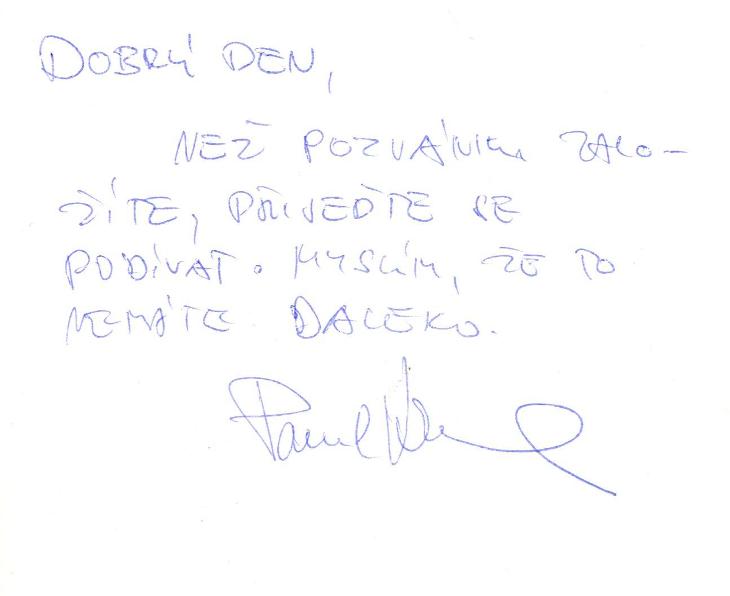 DOBRÝ DEN,
NEŽ POZVÁNKU ZALO-
ŽÍTE, PŘIJEĎTE SE
PODÍVAT. MYSLÍM, ŽE TO
NEMÁTE DALEKO.
Pavel